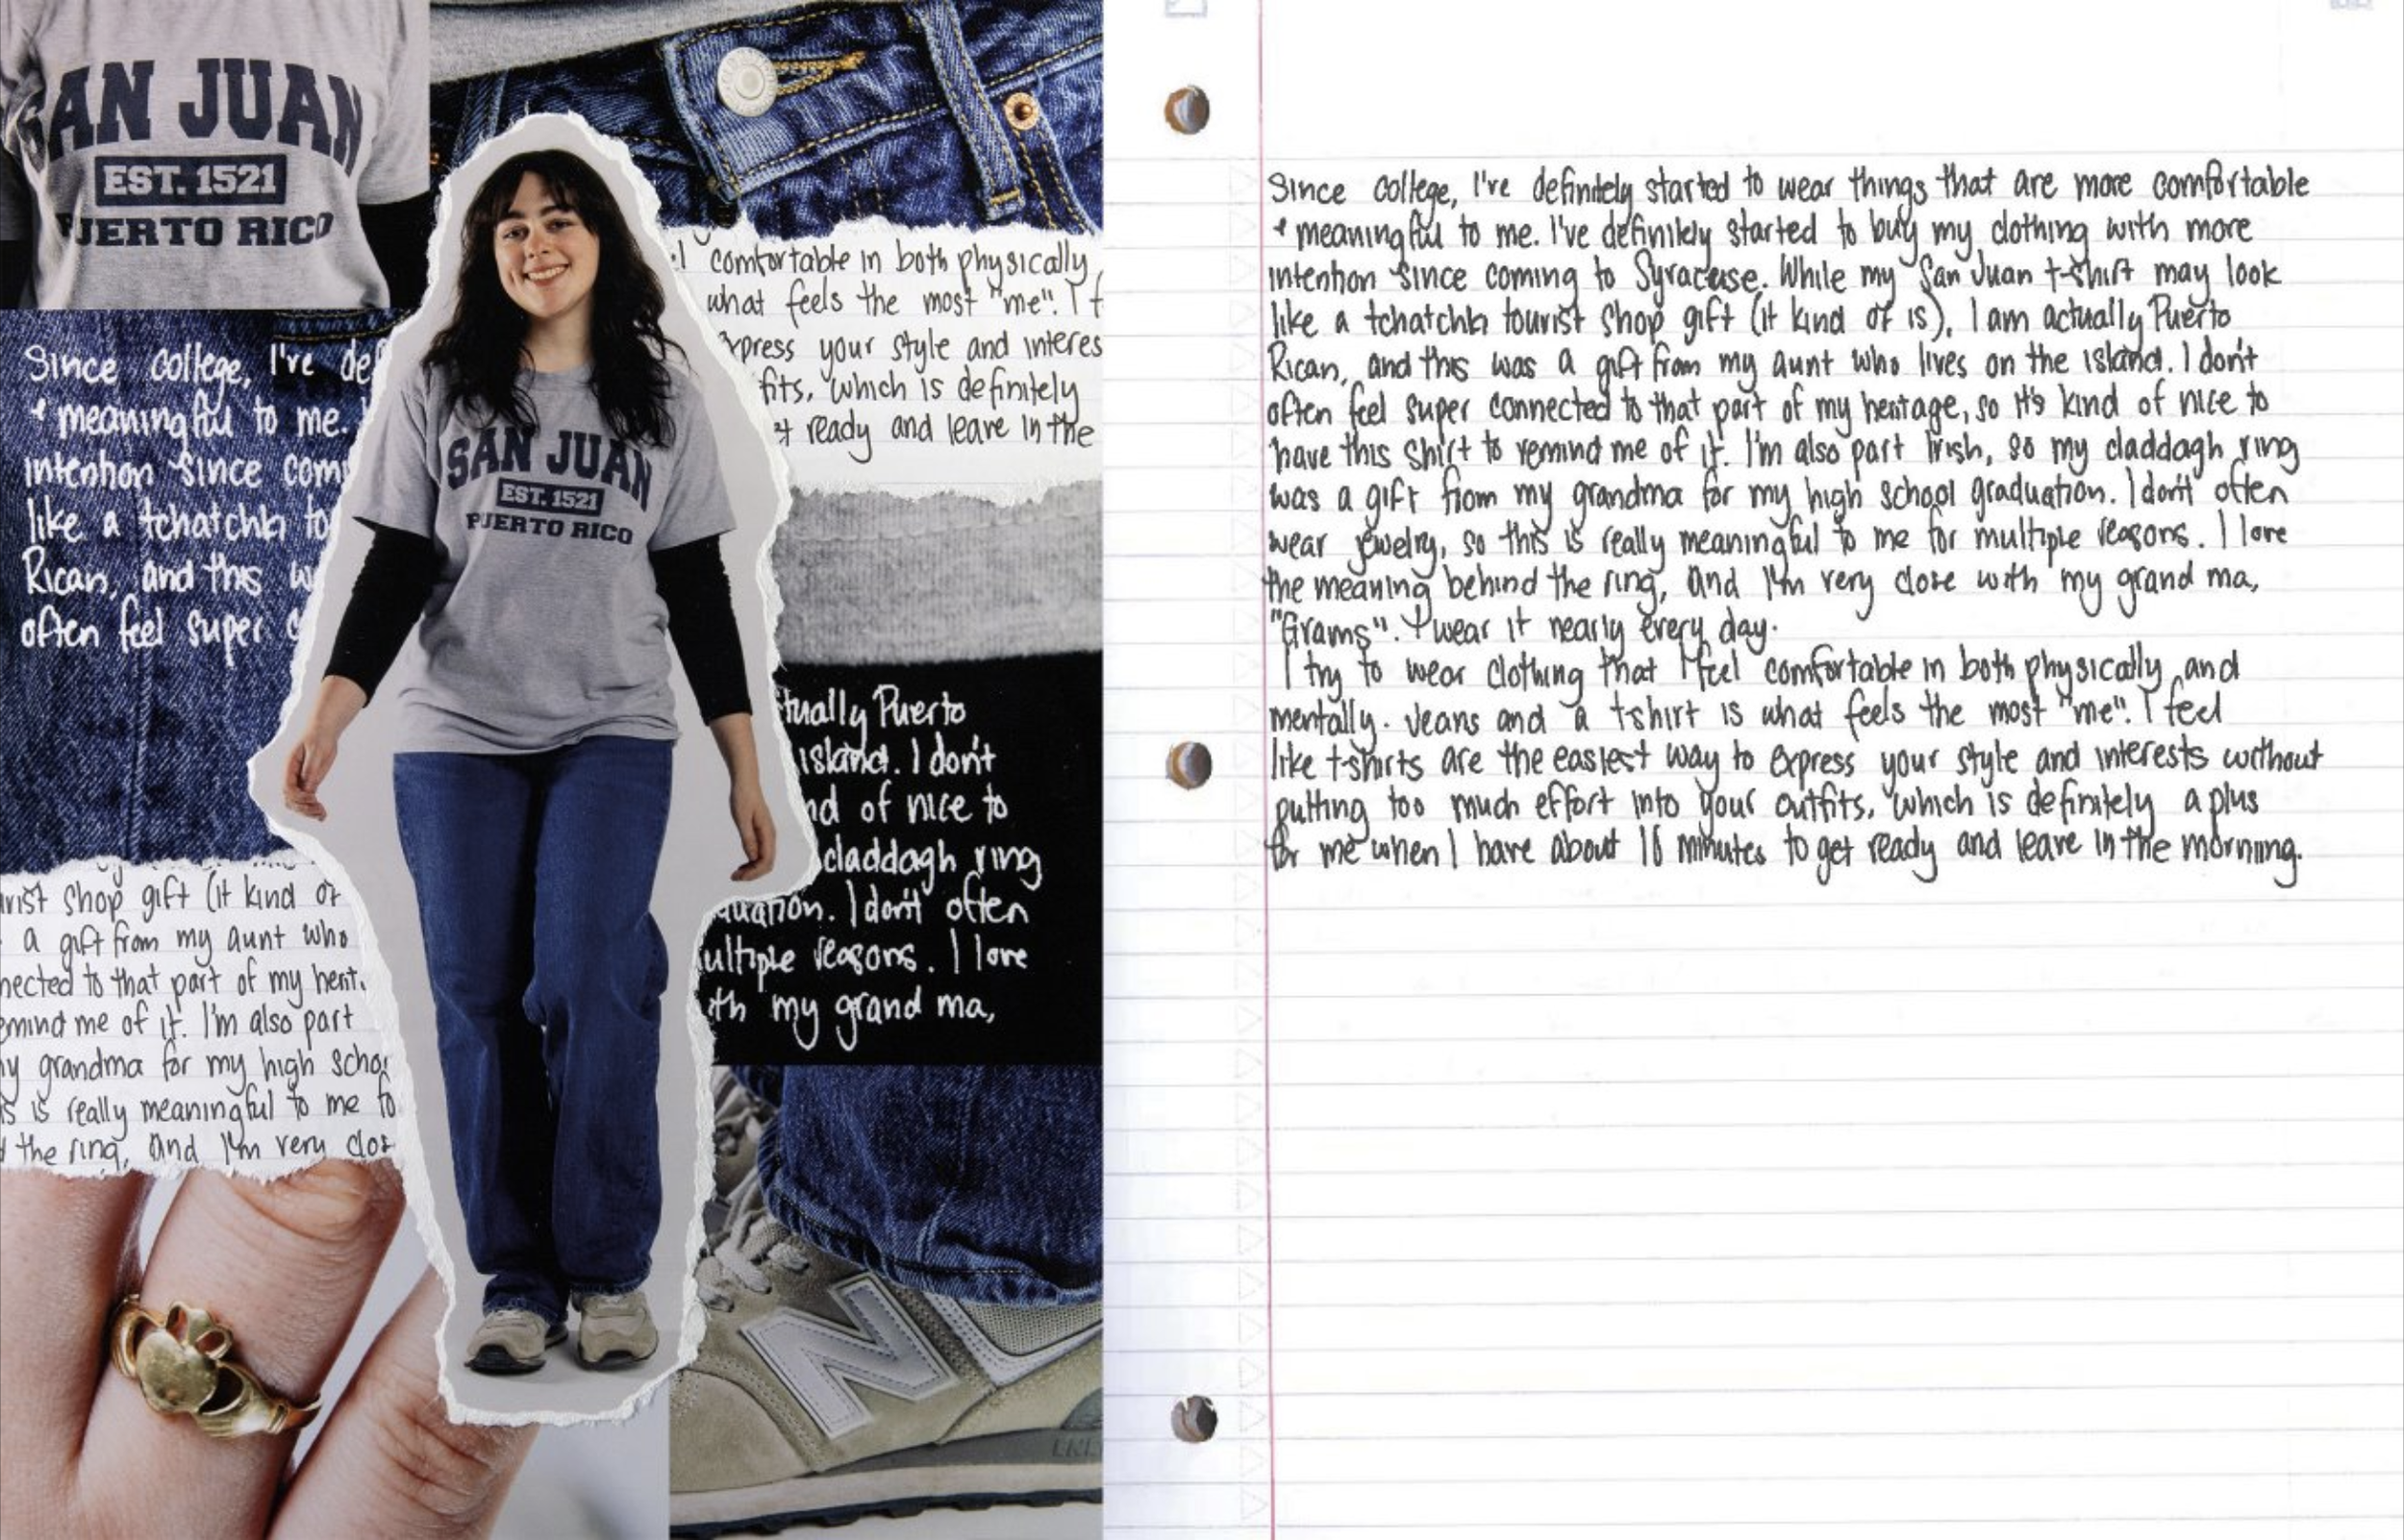 SAN JUAN
EST. 1521
PUERTO RICO
Since college, I've def
+ meaningful to me.
intention since com
like a tchatchki to
Rican, and this w
often feel super c
comfortable in both physically
what feels the most "me". I f
xpress your style and interes
fits, which is definitely
ready and leave in the
SAN JUAN
EST. 1521
PUERTO RICO
tually Puerto
island. I don't
nd of nice to
claddagh ring
duation. I don't often
ultiple reasons. I love
th my grand ma,
urist shop gift (it kind of
a gift from my aunt who
nected to that part of my herit
emind me of it. I'm also part
my grandma for my high schoo
is is really meaningful to me fo
the ring, and I'm very clos
N
Since college, I've definitely started to wear things that are more comfortable
+ meaningful to me. I've definitely started to buy my clothing with more
intention since coming to Syracuse. While my San Juan t-shirt may look
like a tchatchki tourist shop gift (it kind of is), I am actually Puerto
Rican, and this was a gift from my aunt who lives on the island. I don't
often feel super connected to that part of my heritage, so it's kind of nice to
have this shirt to remind me of it. I'm also part Irish, so my claddagh ring
was a gift from my grandma for my high school graduation. I don't often
wear jewelry, so this is really meaningful to me for multiple reasons. I love
the meaning behind the ring, and I'm very close with my grand ma,
"Grams". I wear it nearly every day.
I try to wear clothing that I feel comfortable in both physically and
mentally. Jeans and a t-shirt is what feels the most "me". I feel
like t-shirts are the easiest way to express your style and interests without
putting too much effort into your outfits, which is definitely a plus
for me when I have about 10 minutes to get ready and leave in the morning.